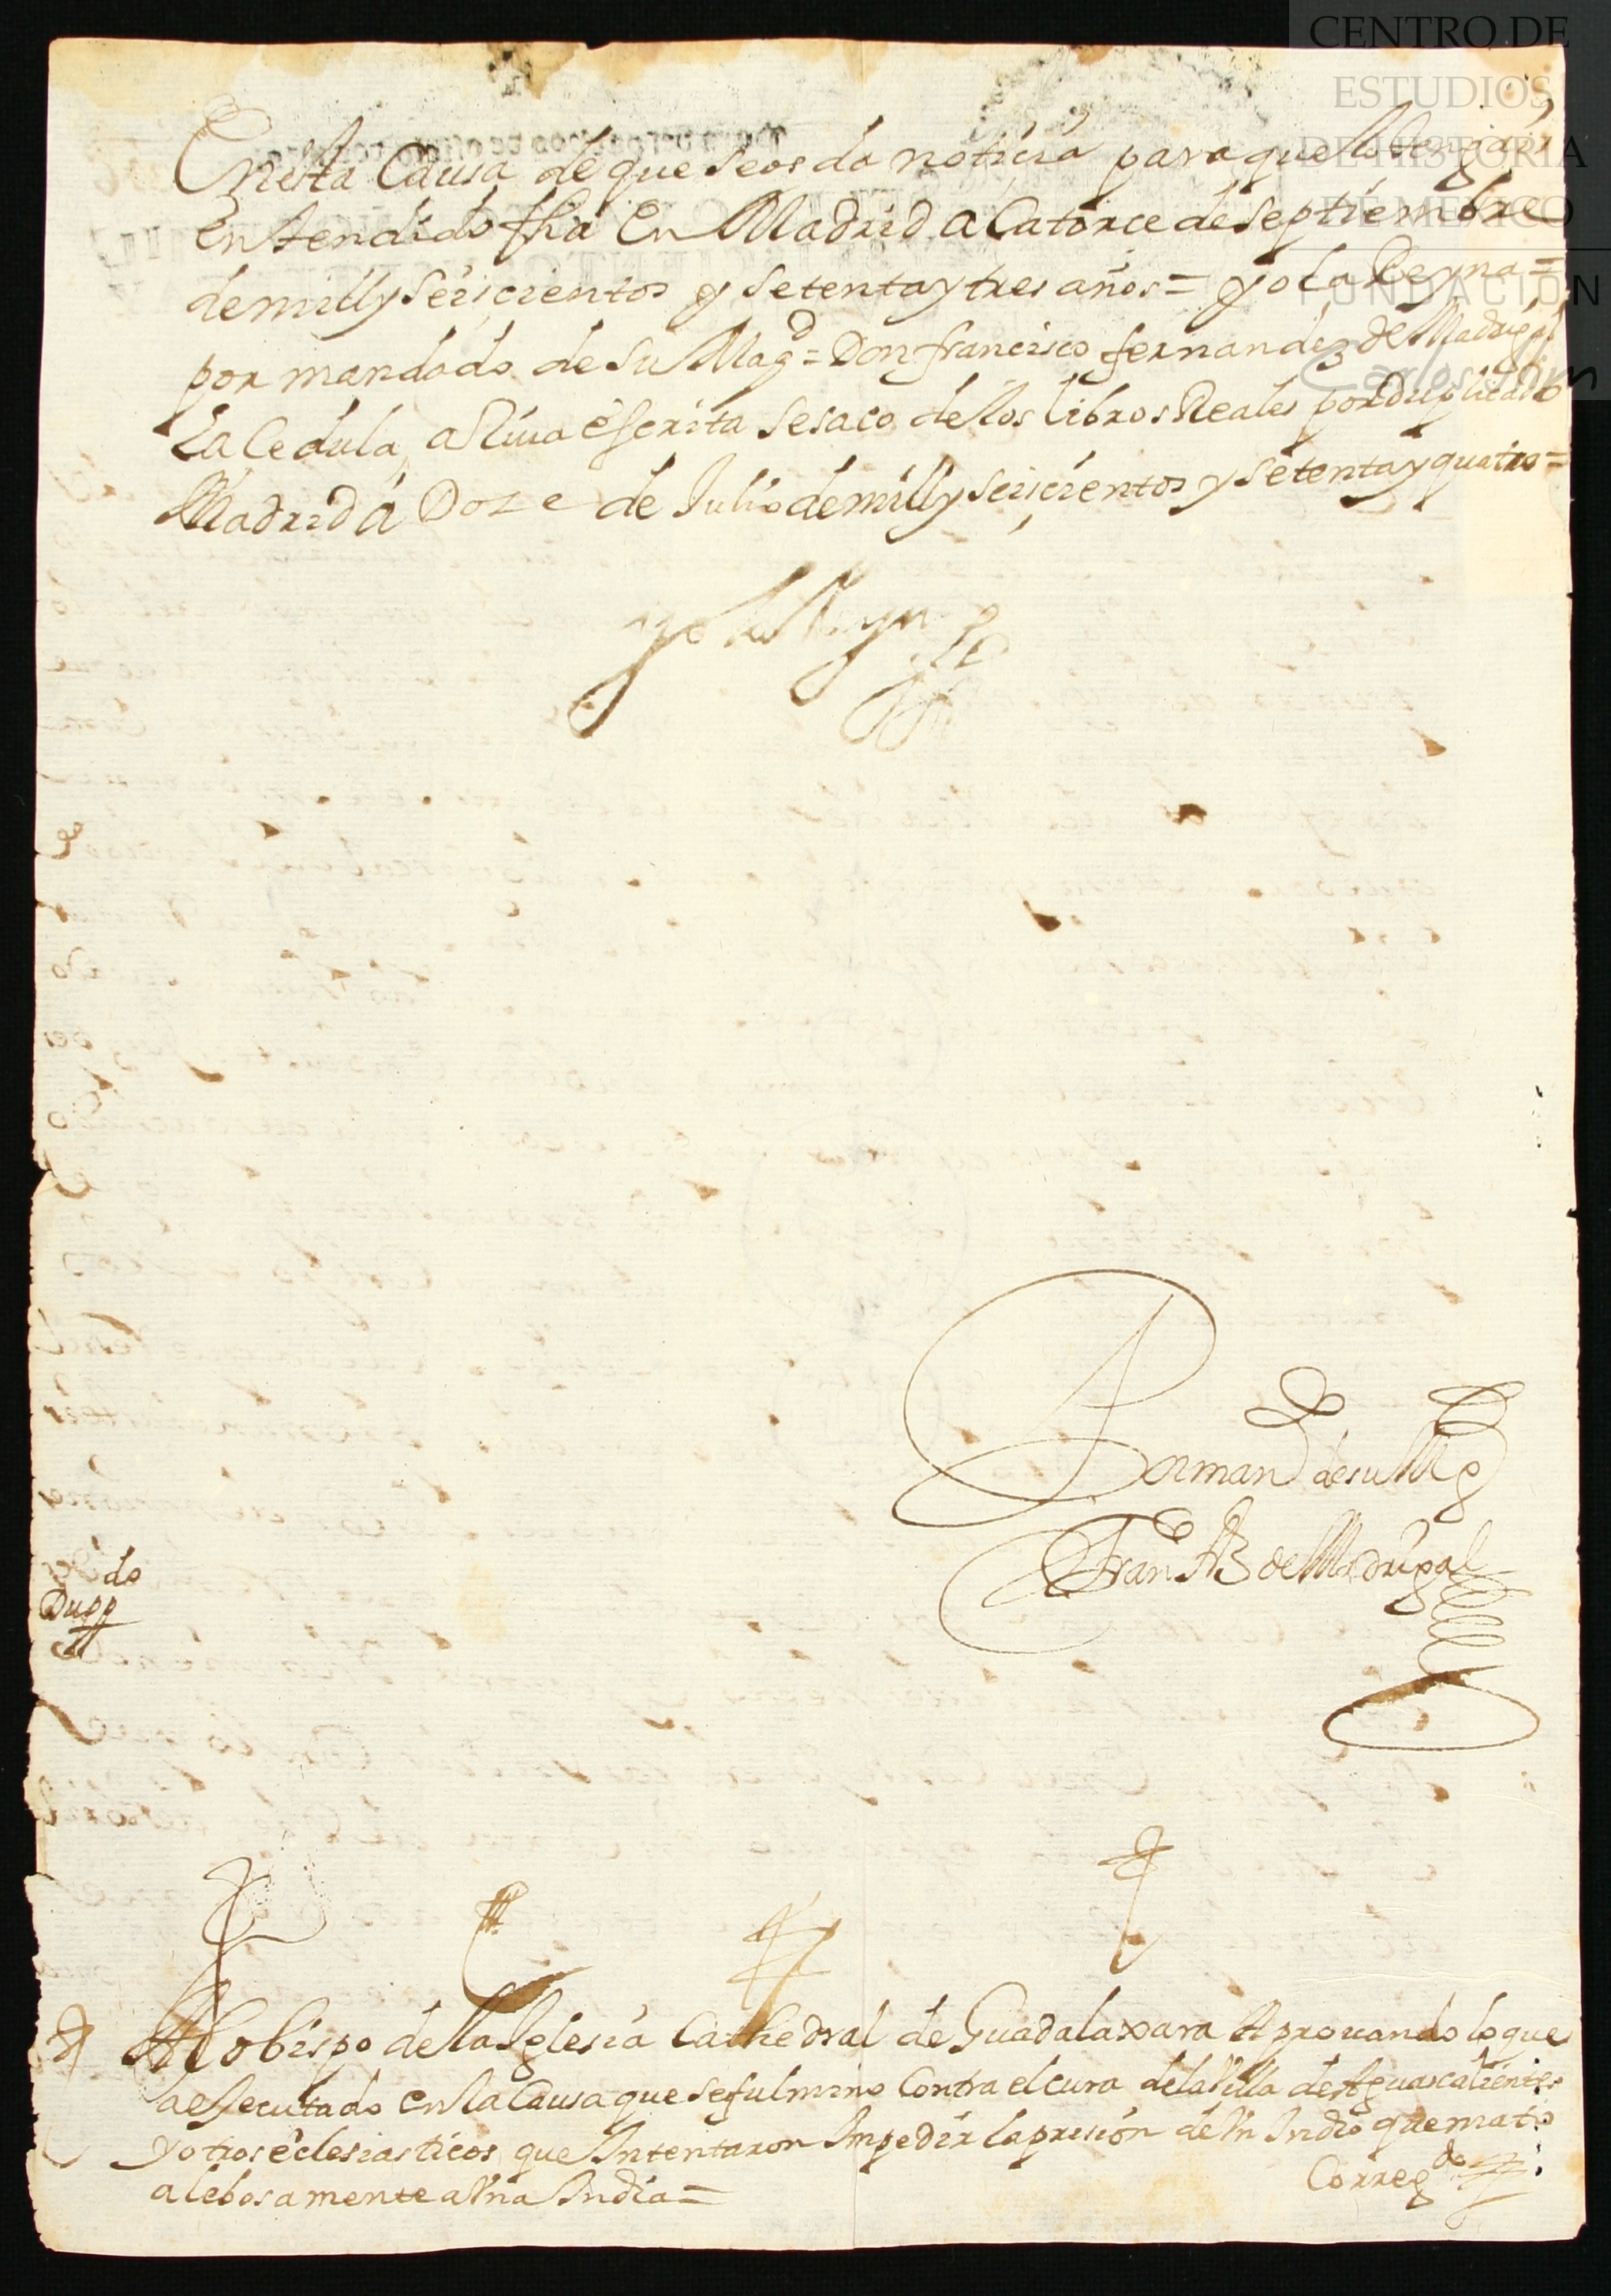 CENTRO DE
ESTUDIOS
DE HISTORIA
DE MÉXICO
FUNDACIÓN
Carlos Slim
En esta Causa de que se os da noticia para que lo tengais
entendido fha En Madrid a Catorce de septiembre
de mill y seiscientos y setenta y tres años = yo la Reyna =
por mandado de su Magd = Don francisco fernandez de Madrigal
La Cedula arriua escrita se saco de los libros Reales por Duplicado
Madrid a Doze de Julio de mill y seiscientos y setenta y quatro =
yo la Reyna
Por mando de su Mgd
Franco Frz de Madrigal
Duppdo
Al obispo de la Iglesia Cathedral de Guadalaxara Aprouando lo que
a essecutado en la Causa que se fulmino Contra el cura de la Villa de Aguascalientes
y otros eclesiasticos que Intentaron Impedir la prision de Vn Indio que mato
alebosamente a Vna India =
Corregdo